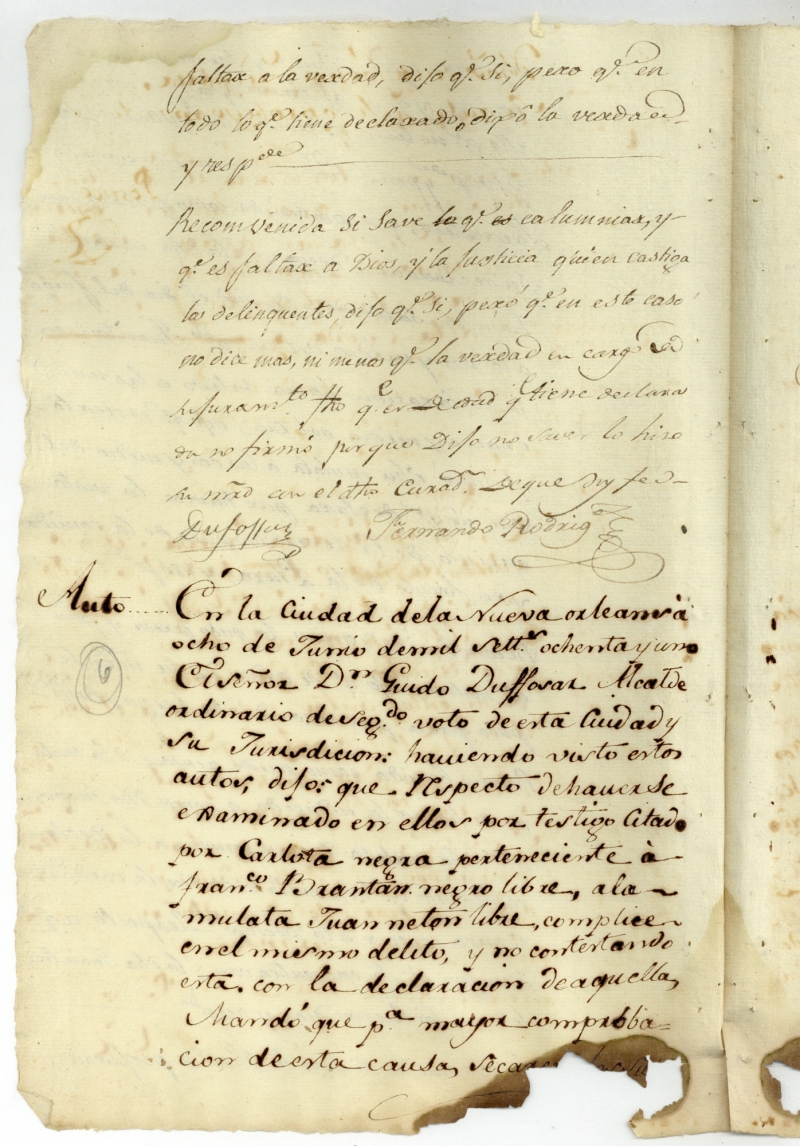 faltar a la verdad, dijo qe. si, pero qe. en
todo lo qe. tiene declarado, dixô la verdad
y respde
Recomvenida si save lo qe. es calumniar, y
qe. es faltar a Dios, y la Justicia quien castiga
los delinquentes, dijo qe. si, peró qe. en este caso
no dice mas, ni menos qe. la verdad en cargo
su juramto. fho qe es de edad qe tiene declara
da no firmó porque Dijo no saver lo hiso
su mrd con el dho Curadr. De que doy fee
Dufossar Fernando Rodrigz
Auto En la Ciudad de la Nueva orleans à
ocho de Junio demil settos. ochenta y uno
El señor Dn Guido Duffosar Alcalde
ordinario de segdo. voto de esta Ciudad y
su Jurisdicion: haviendo visto estos
autos, dijo: que Respecto de haverse
examinado en ellos por testigo Citado
por Carlota negra perteneciente à
franco. Brantan negro libre, a la
mulata Juanneton libre, complice
en el mismo delito, y no contestando
esta con la declaracion de aquella,
Mandó que pa. mayor comproba=
cion de esta causa,
6